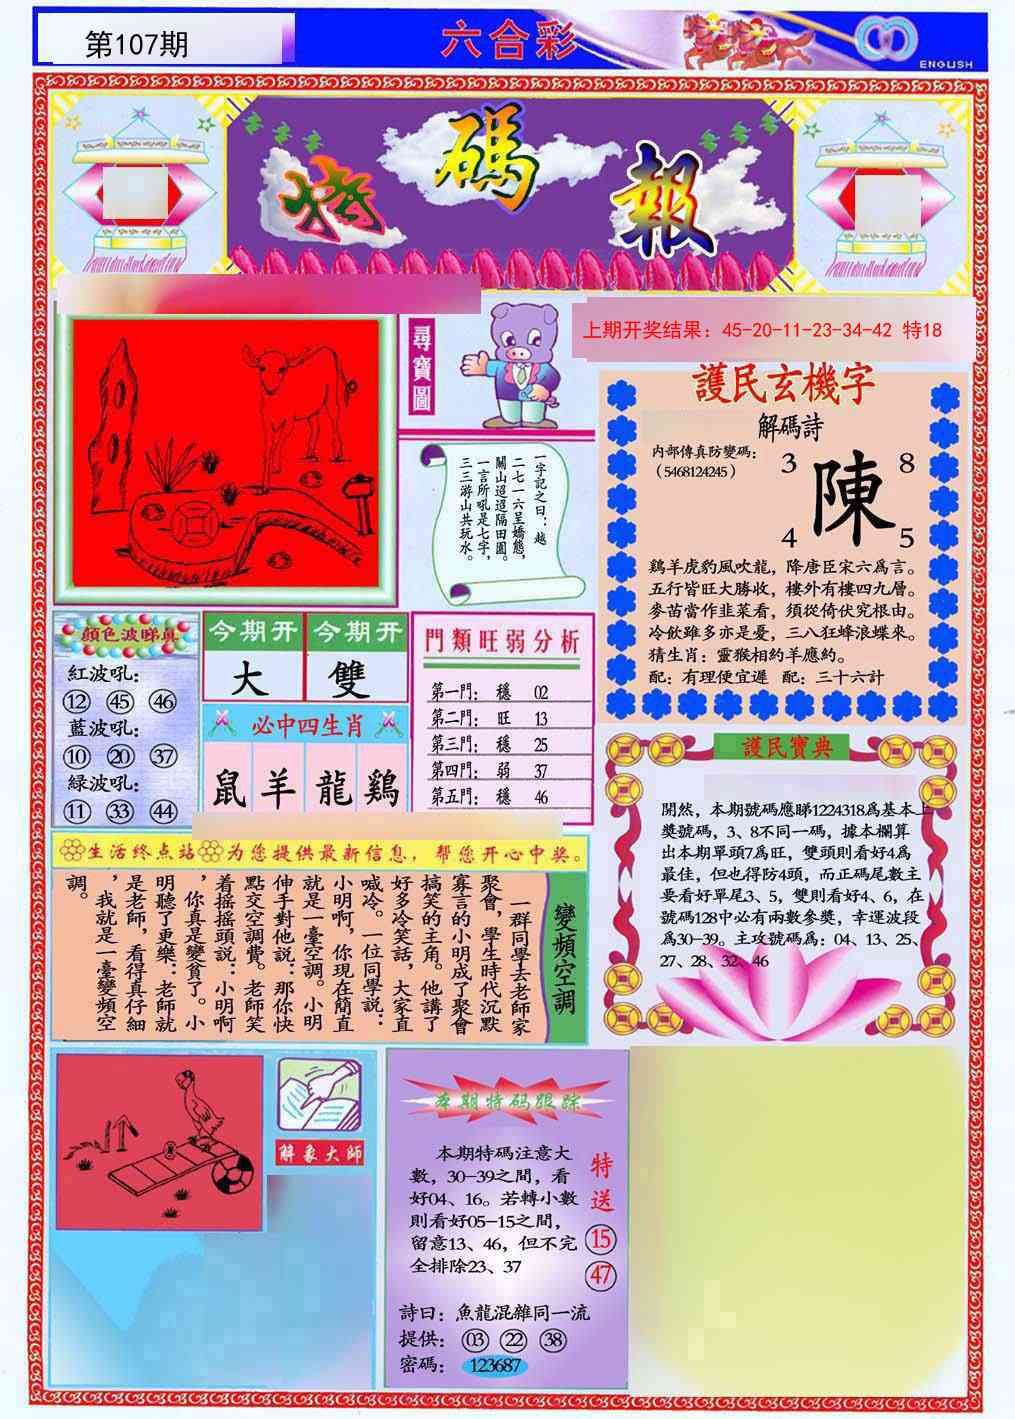 第107期
六合彩
ENGLISH
特
碼
報
上期开奖结果：45-20-11-23-34-42 特18
尋寶圖
一字記之曰：越
二七一六呈嬌態，
關山迢迢隔田園。
一言所吼是七字，
三三游山共玩水。
護民玄機字
解碼詩
内部傳真防變碼：
（5468124245）
3
8
陳
4
5
鷄羊虎豹風吹龍，降唐臣宋六爲言。
五行皆旺大勝收，樓外有樓四九層。
麥苗當作韭菜看，須從倚伏究根由。
冷飲雖多亦是憂，三八狂蜂浪蝶來。
猜生肖：靈猴相約羊應約。
配：有理便宜遲 配：三十六計
顔色波睇真
紅波吼：
12 45 46
藍波吼：
10 20 37
緑波吼：
11 33 44
今期开 今期开
大 雙
必中四生肖
鼠 羊 龍 鷄
門類旺弱分析
第一門： 穩 02
第二門： 旺 13
第三門： 穩 25
第四門： 弱 37
第五門： 穩 46
護民寶典
開然，本期號碼應睇1224318爲基本上
獎號碼，3、8不同一碼，據本欄算
出本期單頭7爲旺，雙頭則看好4爲
最佳，但也得防4頭，而正碼尾數主
要看好單尾3、5，雙則看好4、6，在
號碼128中必有兩數參獎，幸運波段
爲30-39。主攻號碼爲：04、13、25、
27、28、32、46
生活终点站 为您提供最新信息，帮您开心中奖。
變頻空調
一群同學去老師家
聚會，學生時代沉默
寡言的小明成了聚會
搞笑的主角。他講了
好多冷笑話，大家直
喊冷。一位同學説：
小明啊，你現在簡直
就是一臺空調。小明
伸手對他説：那你快
點交空調費。老師笑
着摇摇頭説：小明啊
，你真是變貧了。小
明聽了更樂：老師就
是老師，看得真仔細
，我就是一臺變頻空
調。
解象大師
本期特码跟踪
本期特码注意大
數，30-39之間，看
好04、16。若轉小數
則看好05-15之間，
留意13、46，但不完
全排除23、37
特送
15
47
詩曰：魚龍混雜同一流
提供： 03 22 38
密碼： 123687